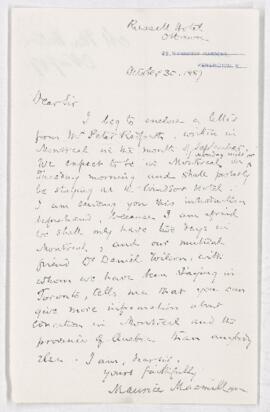 Russell Hotel
Ottawa
October 30. 1887
Dear Sir
I beg to enclose a letter
from Mr Peter Redpath, written in
Montreal in the month of September.
We expect to be in Montreal on
Monday night or
Tuesday morning and shall probably
be staying at the Windsor Hotel.
I am sending you this introduction
beforehand, because I am afraid
we shall only have two days in
Montreal, and our mutual
friend Dr Daniel Wilson, with
whom we have been staying in
Toronto, tells me that you can
give me more information about
education in Montreal and the
province of Quebec than anybody
else. I am, dear sir,
Yours faithfully
Maurice Macmillan